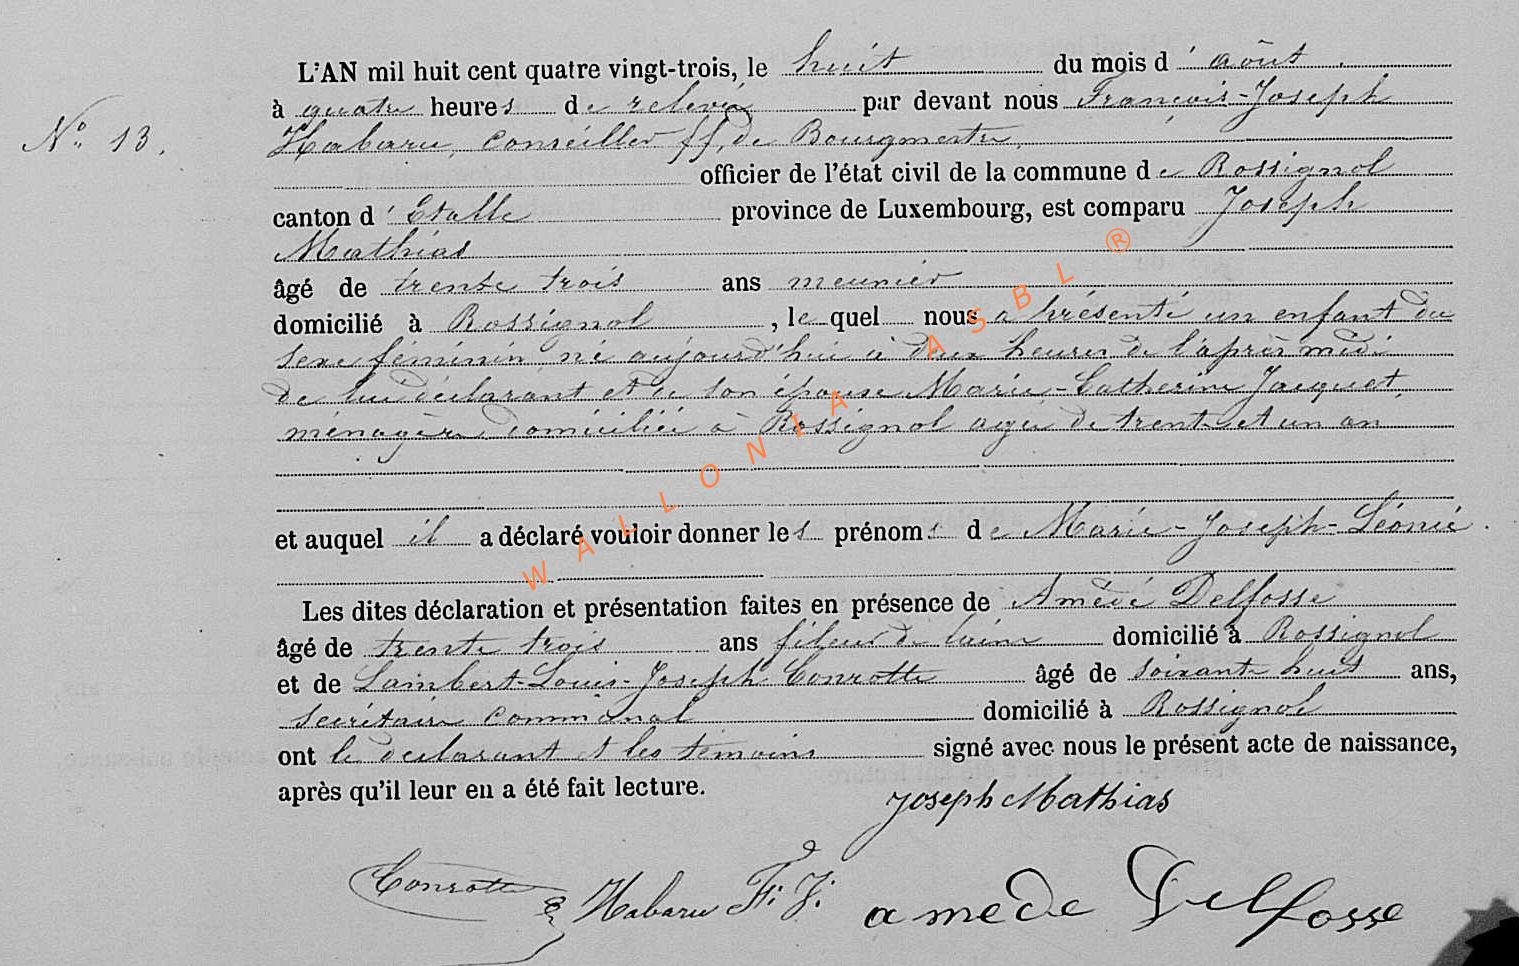 L'AN mil huit cent quatre vingt-trois, le huit du mois d'août.
à quatre heures de relevée par devant nous François-Joseph
N° 13.
Habaru, conseiller ff. de Bourgmestre,
officier de l'état civil de la commune de Rossignol
canton d'Etalle province de Luxembourg, est comparu Joseph
Mathias
âgé de trente trois ans meunier
domicilié à Rossignol, lequel nous a présenté un enfant du
sexe féminin né aujourd'hui à deux heures de l'après midi
de lui déclarant et de son épouse Marie-Catherine Jacquet,
ménagère domiciliée à Rossignol agée de trente et un an
et auquel il a déclaré vouloir donner les prénoms de Marie-Joseph-Léonie.
Les dites déclaration et présentation faites en présence de Amédé Delfosse
âgé de trente trois ans fileur de laine domicilié à Rossignol
et de Lambert-Louis-Joseph Conrotte âgé de soixante huit ans,
secrétaire communal domicilié à Rossignol
ont le déclarant et les témoins signé avec nous le présent acte de naissance,
après qu'il leur en a été fait lecture.
Joseph Mathias
Conrotte Habaru F. J. amede Delfosse
WALLONIA ASBL ®